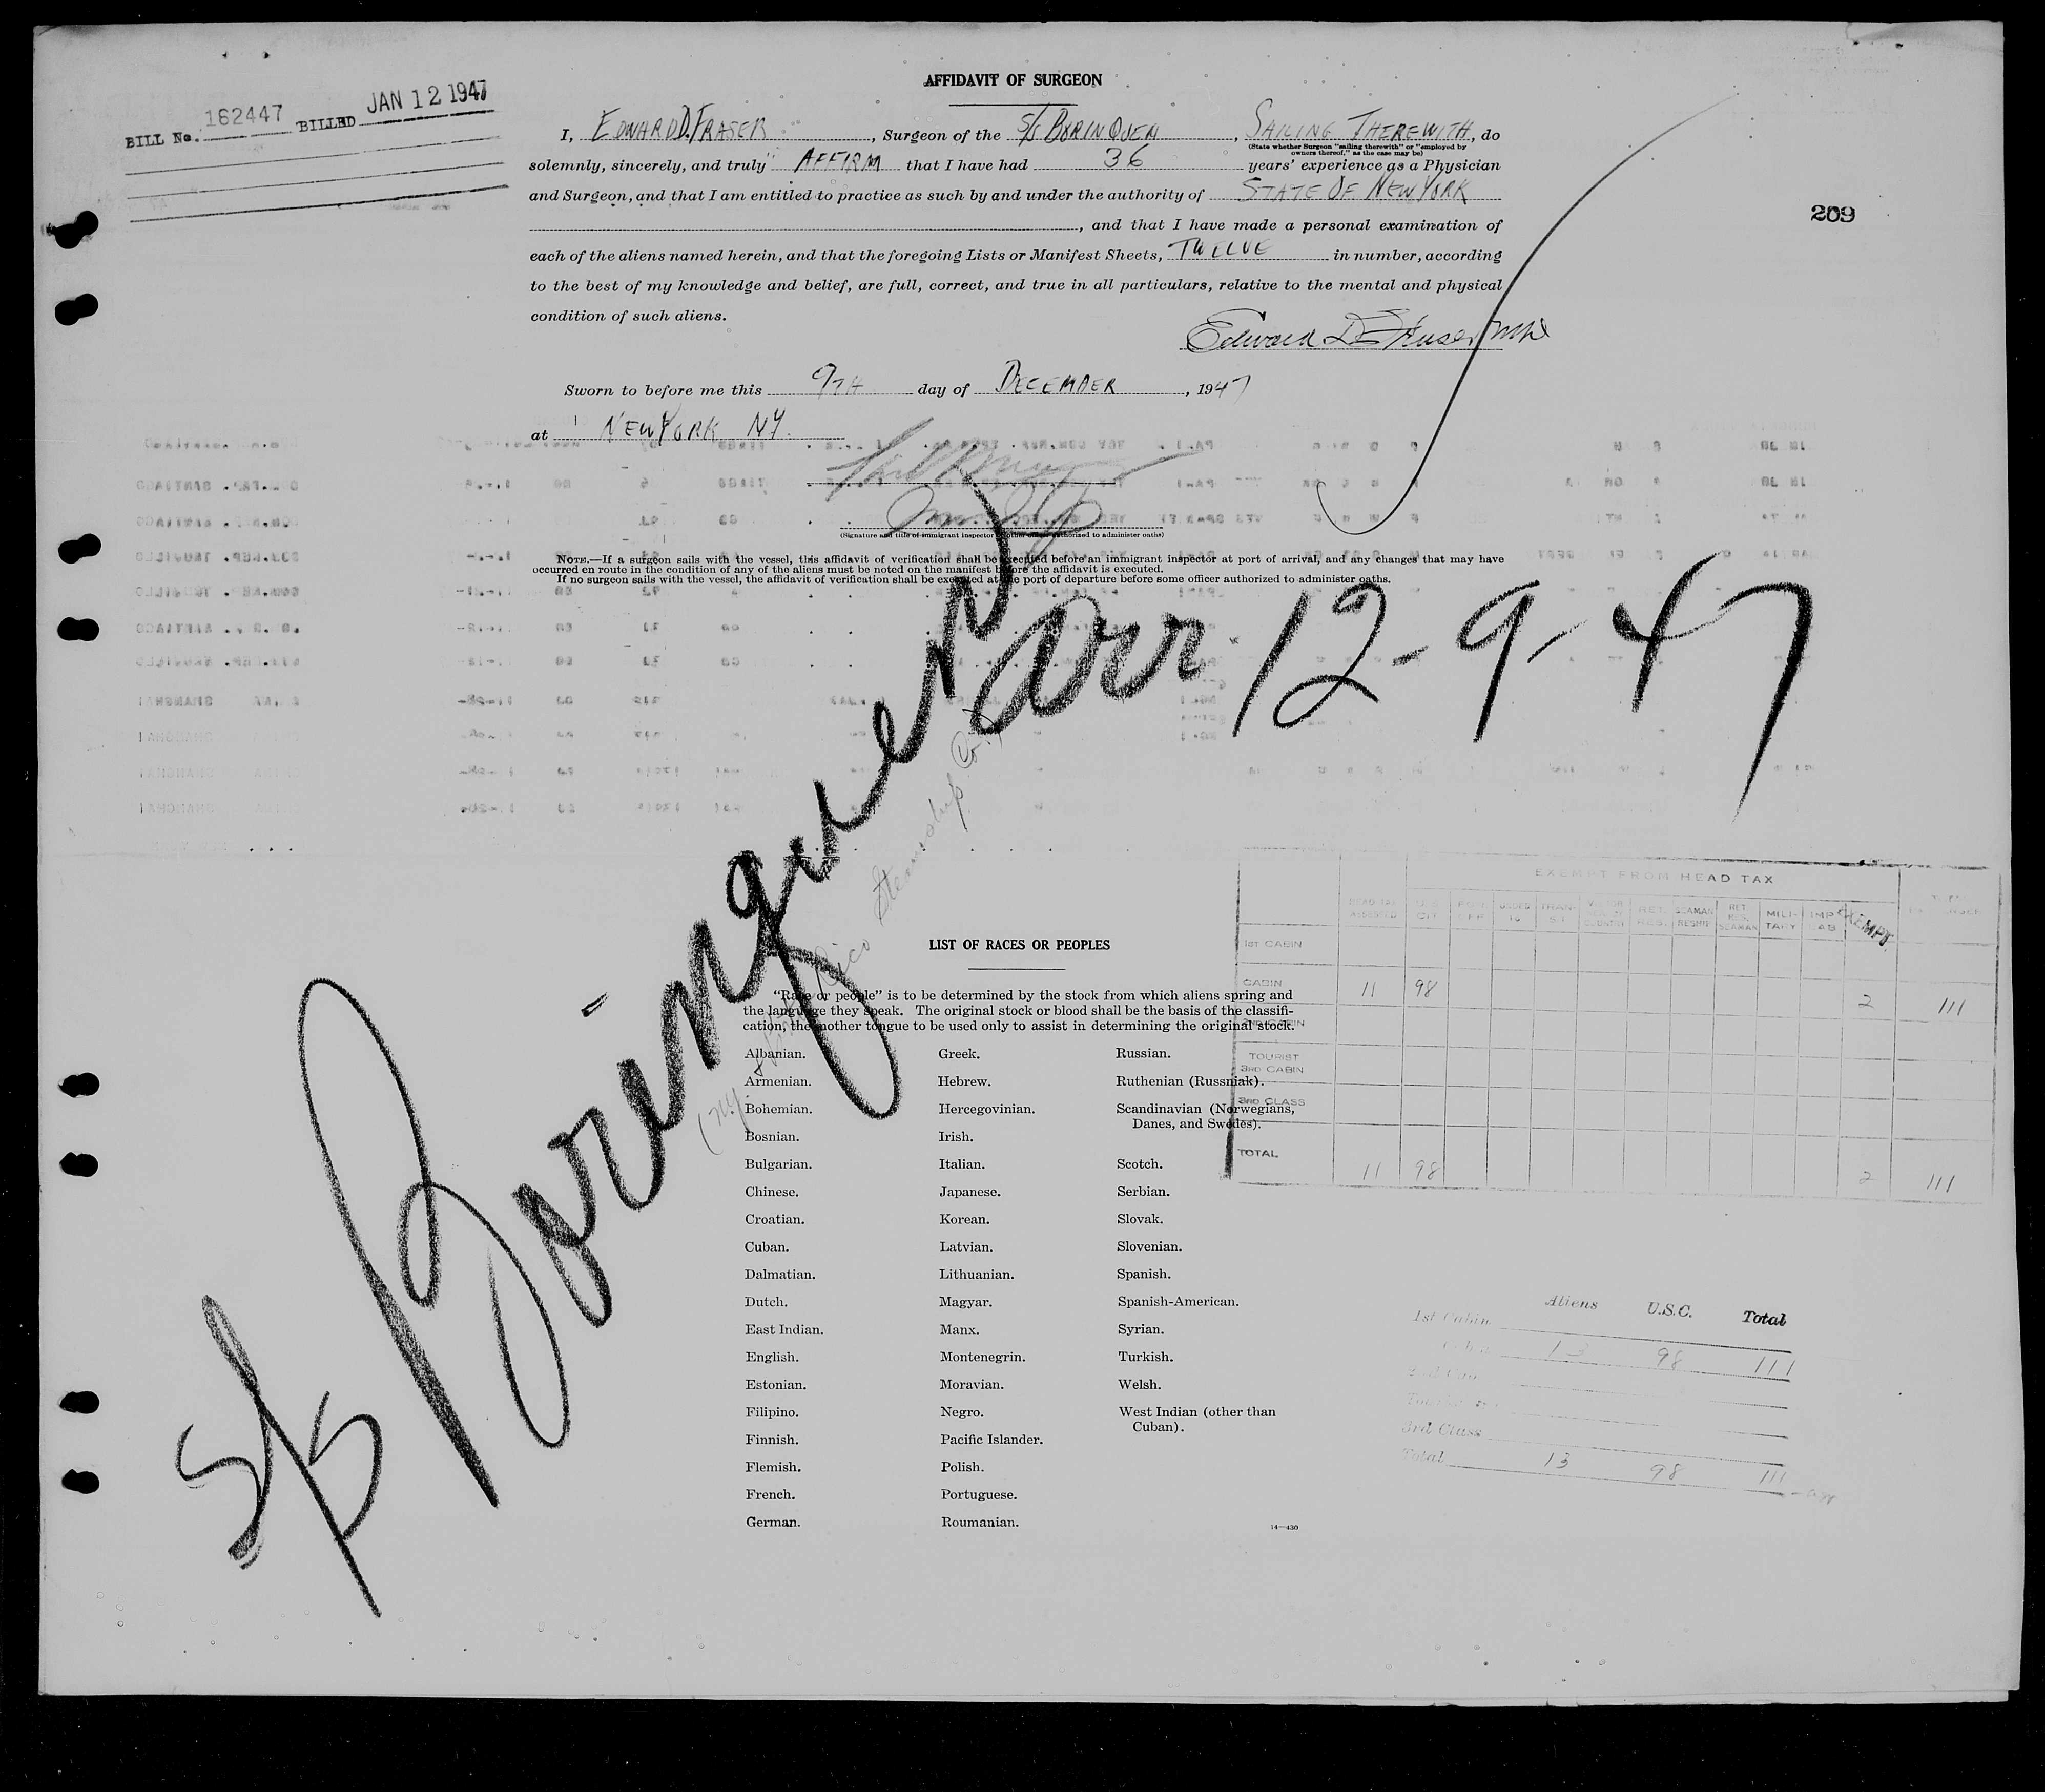 AFFIDAVIT OF SURGEON
BILL No. 162447 BILLED JAN 12 1947
I, EDWARD D. FRASER, Surgeon of the S/S BORINQUEN, SAILING THEREWITH, do
(State whether Surgeon "sailing therewith" or "employed by
owners thereof," as the case may be)
solemnly, sincerely, and truly AFFIRM that I have had 36 years' experience as a Physician
and Surgeon, and that I am entitled to practice as such by and under the authority of STATE OF NEW YORK
, and that I have made a personal examination of
209
each of the aliens named herein, and that the foregoing Lists or Manifest Sheets, TWELVE in number, according
to the best of my knowledge and belief, are full, correct, and true in all particulars, relative to the mental and physical
condition of such aliens.
Edward D Fraser MD
Sworn to before me this 9TH day of DECEMBER, 1947
at NEW YORK NY.
(Signature and title of immigrant inspector or other officer authorized to administer oaths)
NOTE.—If a surgeon sails with the vessel, this affidavit of verification shall be executed before an immigrant inspector at port of arrival, and any changes that may have
occurred en route in the condition of any of the aliens must be noted on the manifest before the affidavit is executed.
If no surgeon sails with the vessel, the affidavit of verification shall be executed at the port of departure before some officer authorized to administer oaths.
S/S Borinquen arr 12-9-47
(NY & Porto Rico Steamship Co.)
LIST OF RACES OR PEOPLES
"Race or people" is to be determined by the stock from which aliens spring and
the language they speak. The original stock or blood shall be the basis of the classifi-
cation, the mother tongue to be used only to assist in determining the original stock.
Albanian.
Armenian.
Bohemian.
Bosnian.
Bulgarian.
Chinese.
Croatian.
Cuban.
Dalmatian.
Dutch.
East Indian.
English.
Estonian.
Filipino.
Finnish.
Flemish.
French.
German.
Greek.
Hebrew.
Hercegovinian.
Irish.
Italian.
Japanese.
Korean.
Latvian.
Lithuanian.
Magyar.
Manx.
Montenegrin.
Moravian.
Negro.
Pacific Islander.
Polish.
Portuguese.
Roumanian.
Russian.
Ruthenian (Russniak).
Scandinavian (Norwegians,
Danes, and Swedes).
Scotch.
Serbian.
Slovak.
Slovenian.
Spanish.
Spanish-American.
Syrian.
Turkish.
Welsh.
West Indian (other than
Cuban).
14—430
EXEMPT FROM HEAD TAX
HEAD TAX ASSESSED U.S. CIT TRAN-SIT SEAMAN RESHIP RET. RES. SEAMAN MILI-TARY EXEMPT
1ST CABIN
CABIN 11 98 2 111
2ND CABIN
TOURIST
3RD CABIN
3RD CLASS
TOTAL 11 98 2 111
Aliens U.S.C. Total
1st Cabin
Cabin 13 98 111
3rd Class
Total 13 98 111